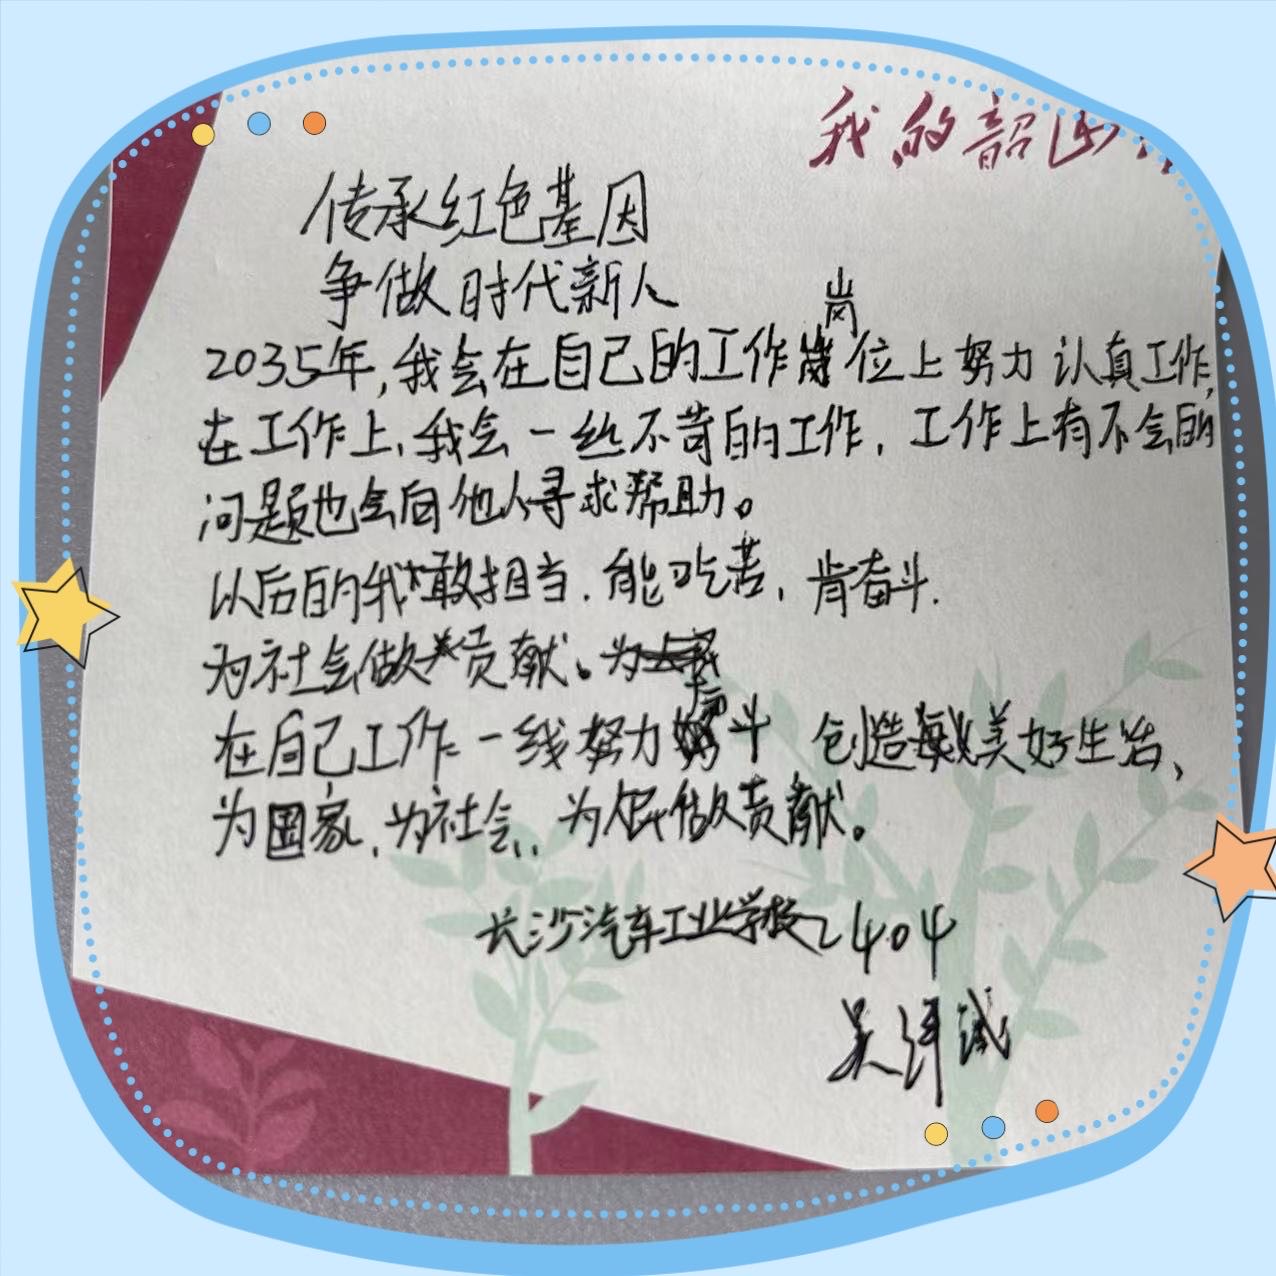 我的韶山
传承红色基因
争做时代新人
岗
2035年,我会在自己的工作位上努力认真工作,
在工作上,我会一丝不苟的工作,工作上有不会的
问题也会向他人寻求帮助。
以后的我敢担当.能吃苦,肯奋斗.
为社会做贡献。为
在自己工作一线努力奋斗 创造美好生活、
为国家,为社会,为人民做贡献。
长沙汽车工业学校2404
吴